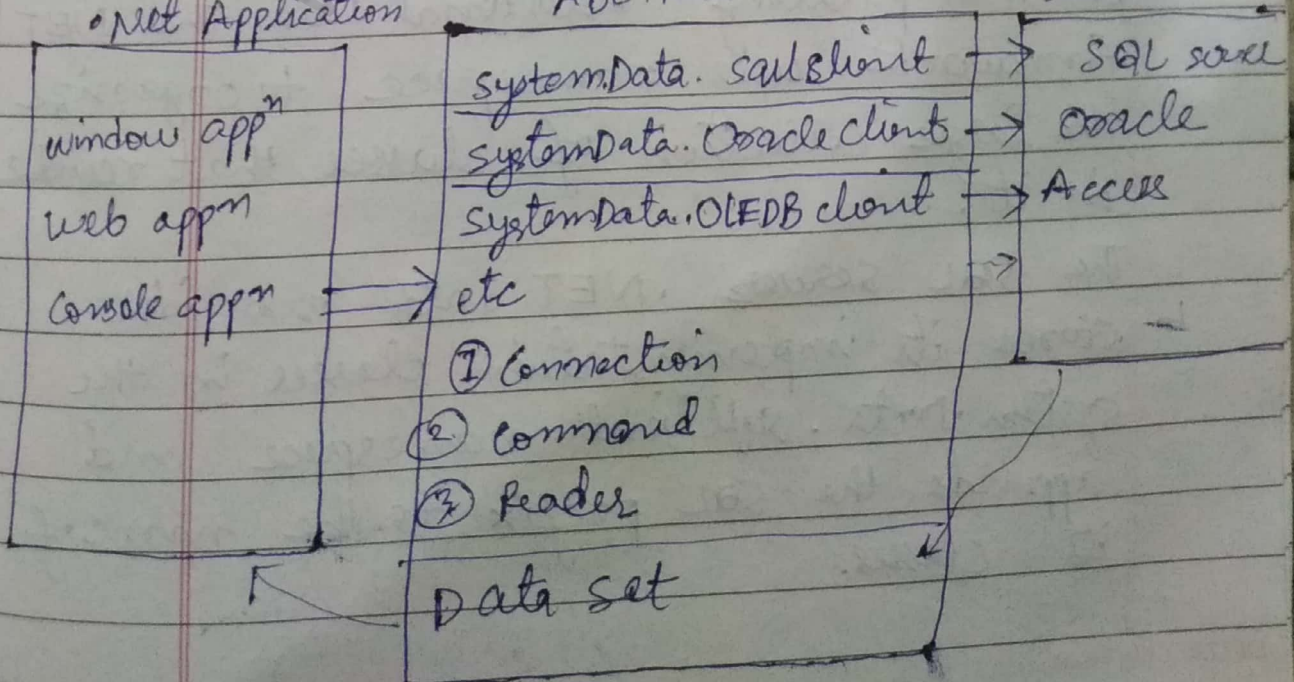 .Net Application
window appⁿ
web appⁿ
Console appⁿ
System.Data. SqlClient
SystemData. Oracle client
SystemData.OLEDB client
etc
① Connection
② Command
③ Reader
Data set
SQL
Oracle
Access